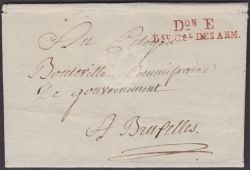 Don E
Bau Gal DES ARM.
Au Citoyen
Bouteville Commissaire
De gouvernement
A Bruxelles.